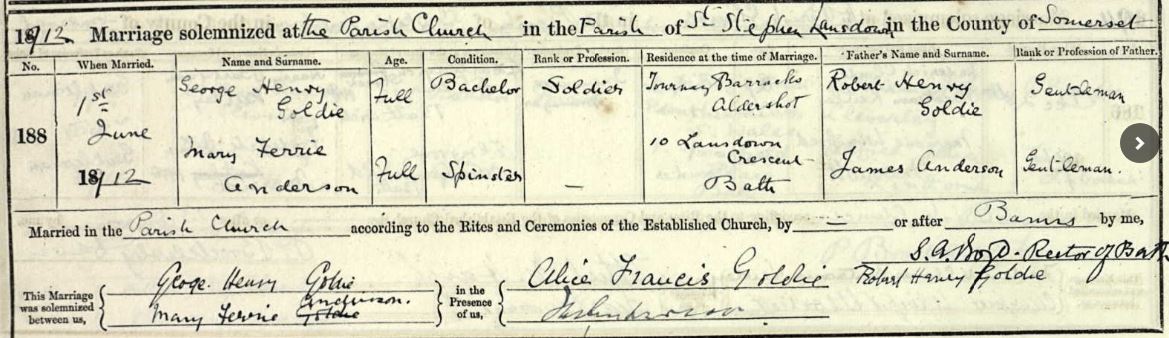 1912 Marriage solemnized at the Parish Church in the Parish of St Stephen Lansdown in the County of Somerset
No. When Married. Name and Surname. Age. Condition. Rank or Profession. Residence at the time of Marriage. Father's Name and Surname. Rank or Profession of Father.
188 1st June 1912 George Henry Goldie Full Bachelor Soldier Tournay Barracks Aldershot Robert Henry Goldie Gentleman
Mary Ferrie Anderson Full Spinster — 10 Lansdown Crescent Bath James Anderson Gentleman.
Married in the Parish Church according to the Rites and Ceremonies of the Established Church, by — or after Banns by me,
S.A. Boyd - Rector of Bath
This Marriage was solemnized between us, George Henry Goldie
Mary Ferrie Goldie Anderson.
in the Presence of us, Alice Francis Goldie Robert Henry Goldie